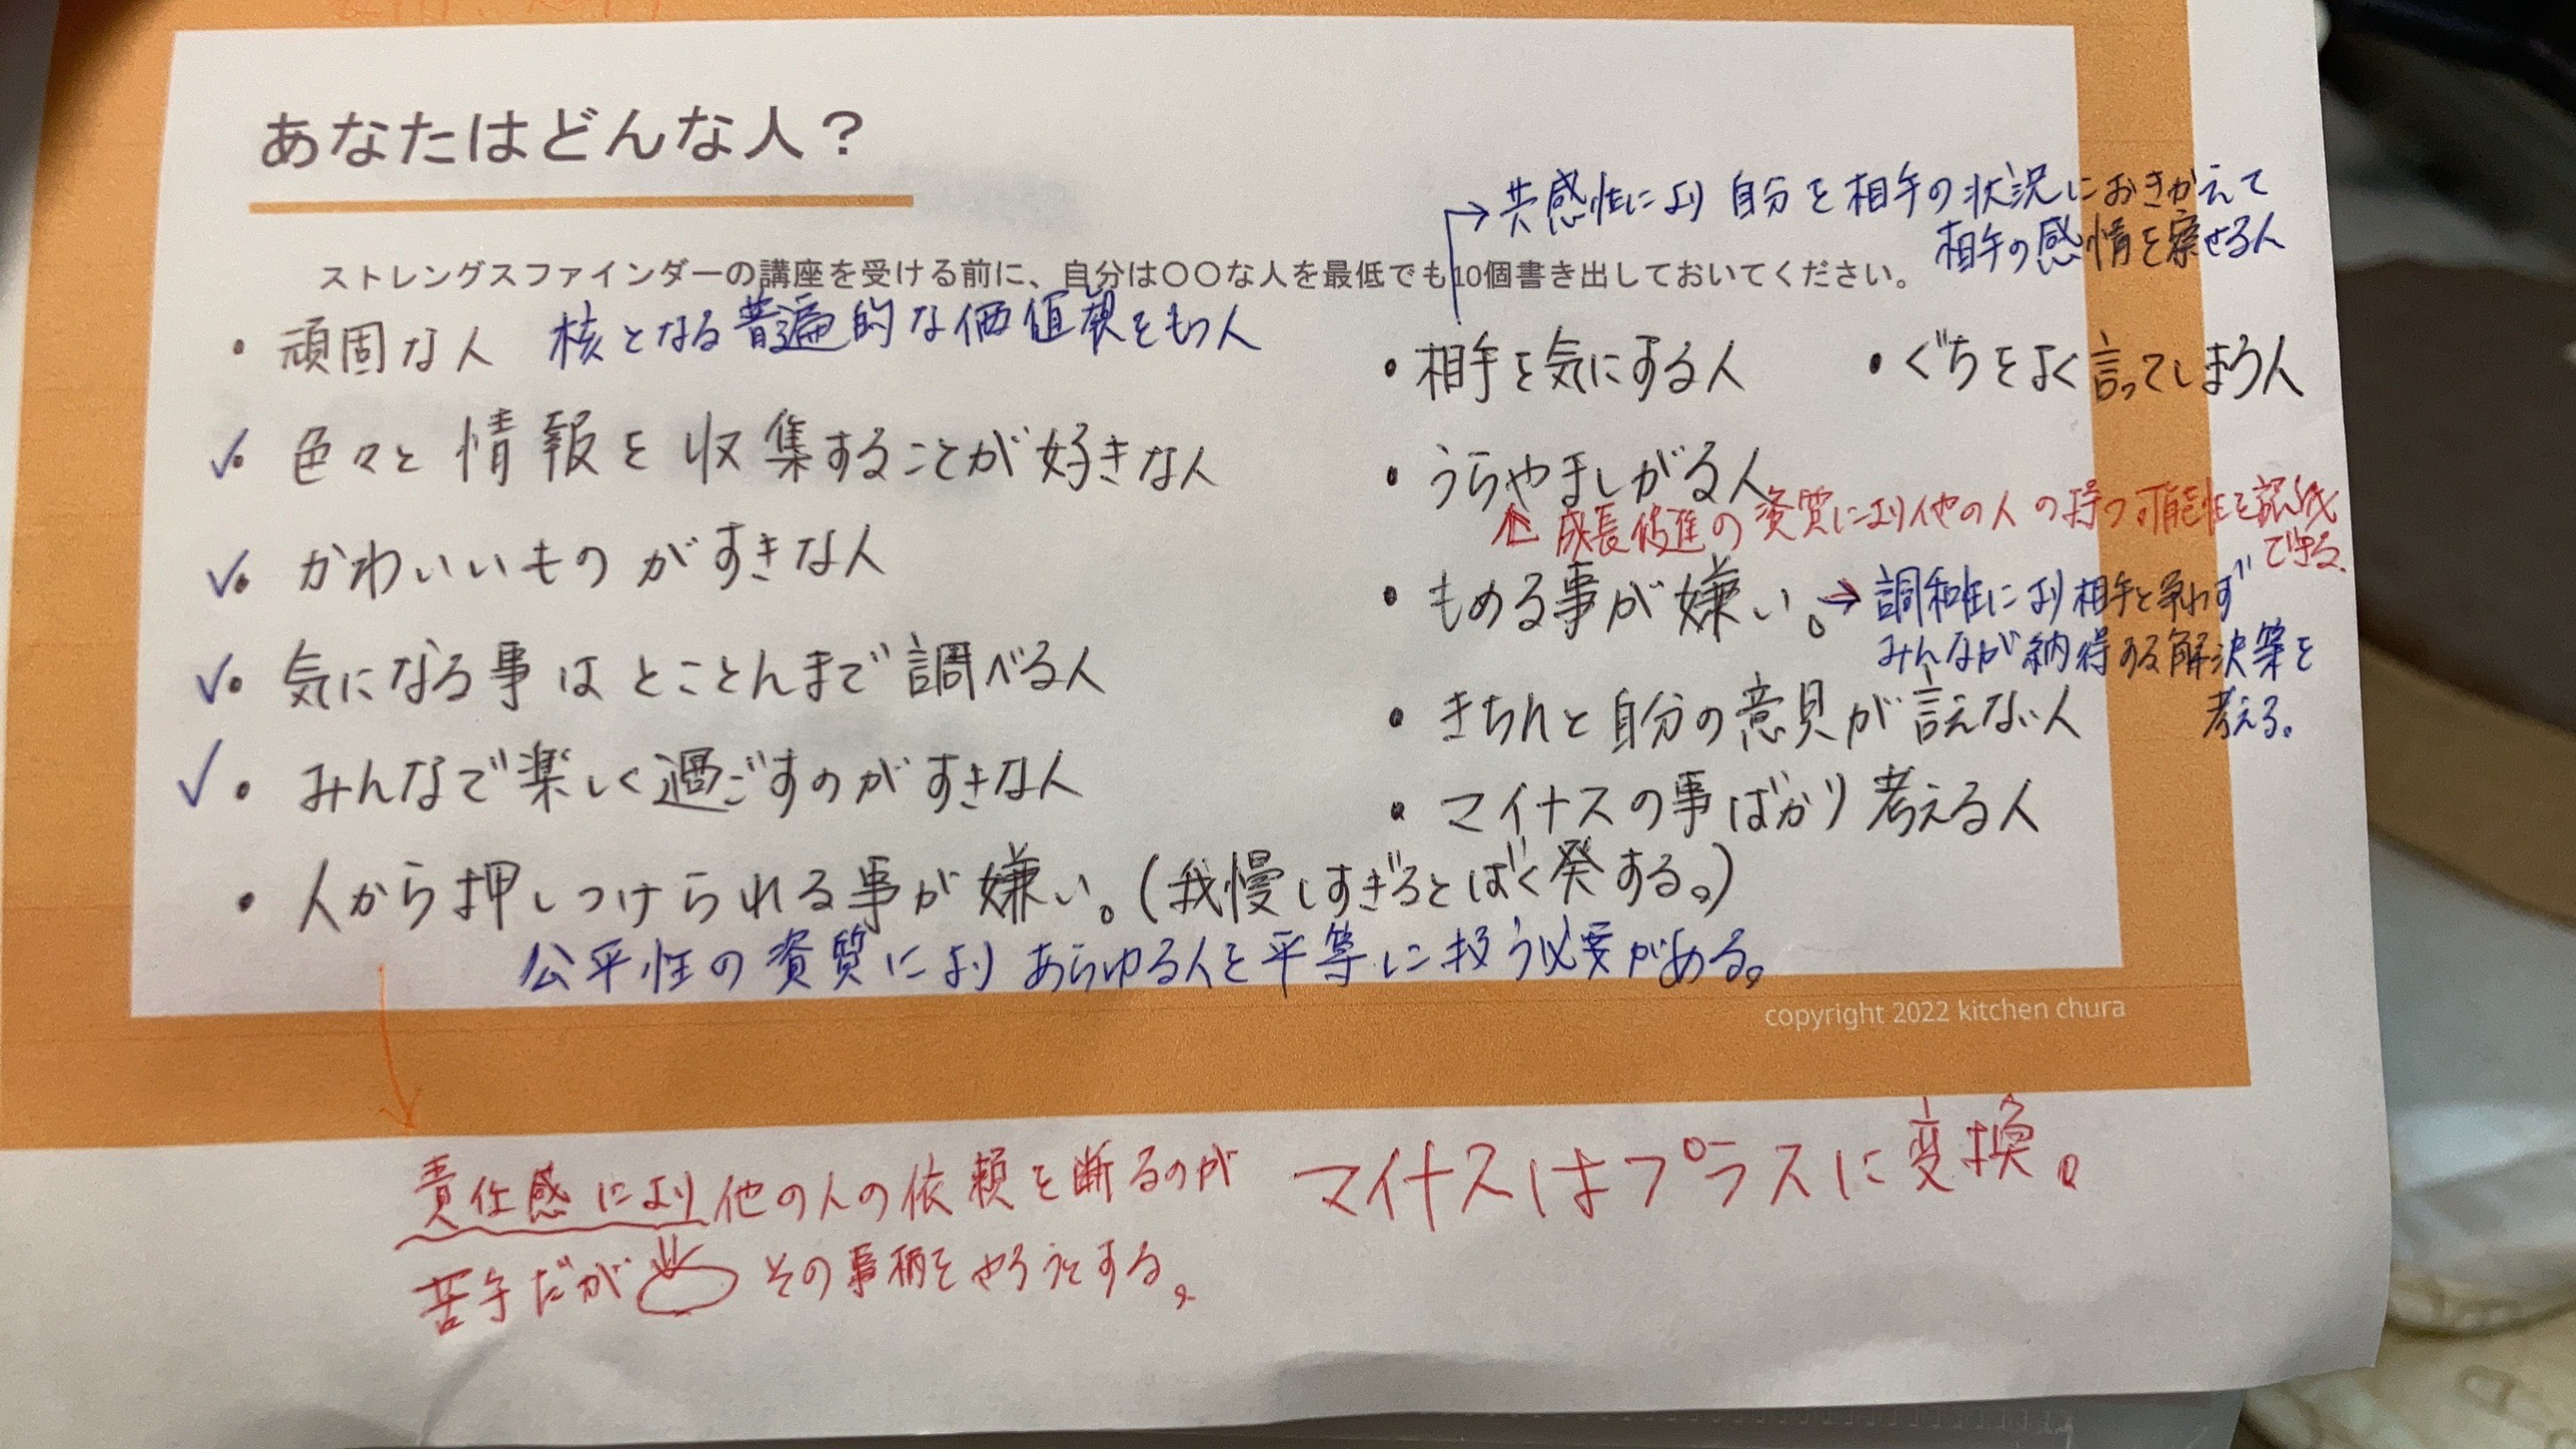 あなたはどんな人？
ストレングスファインダーの講座を受ける前に、自分は〇〇な人を最低でも10個書き出しておいてください。
・頑固な人 核となる普遍的な価値観をもつ人
✓・色々と情報を収集することが好きな人
✓・かわいいものがすきな人
✓・気になる事はとことんまで調べる人
✓・みんなで楽しく過ごすのがすきな人
・人から押しつけられる事が嫌い。(我慢しすぎるとばく発する。)
公平性の資質によりあらゆる人を平等に扱う必要がある。
→共感性により自分を相手の状況におきかえて
相手の感情を察せる人
・相手を気にする人 ・ぐちをよく言ってしまう人
・うらやましがる人
↑成長促進の資質により他の人の持つ可能性を認識
できる.
・もめる事が嫌い。→調和性により相手と争わず
みんなが納得する解決策を
考える。
・きちんと自分の意見が言えない人
・マイナスの事ばかり考える人
copyright 2022 kitchen chura
責任感により他の人の依頼を断るのが
苦手だが その事柄をやろうとする。
マイナスはプラスに変換。